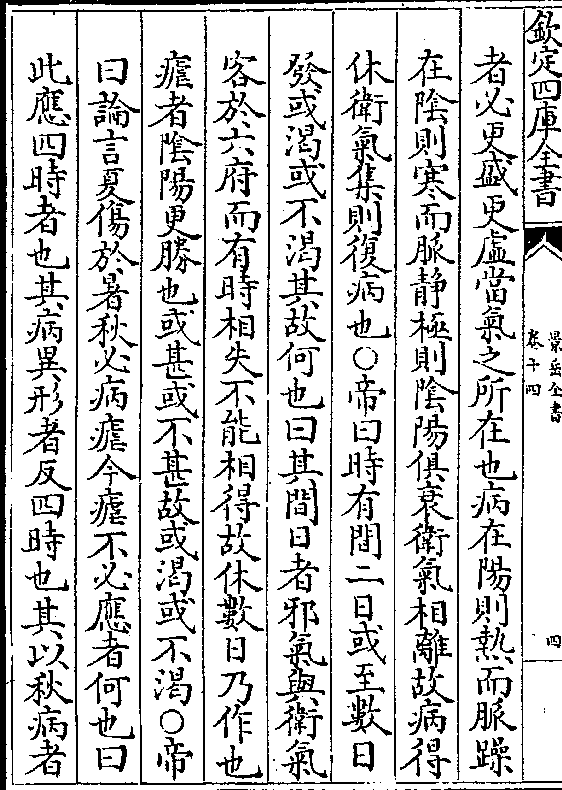 欽定四庫全書
景岳全書
卷十四
四
者必更盛更虛當氣之所在也病在陽則熱而脈躁
在陰則寒而脈静極則陰陽俱衰衛氣相離故病得
休衛氣集則復病也○帝曰時有間二日或至數日
發或渴或不渴其故何也曰其間日者邪氣與衛氣
客於六府而有時相失不能相得故休數日乃作也
瘧者陰陽更勝也或甚或不甚故或渴或不渴○帝
曰論言夏傷於暑秋必病瘧今瘧不必應者何也曰
此應四時者也其病異形者反四時也其以秋病者